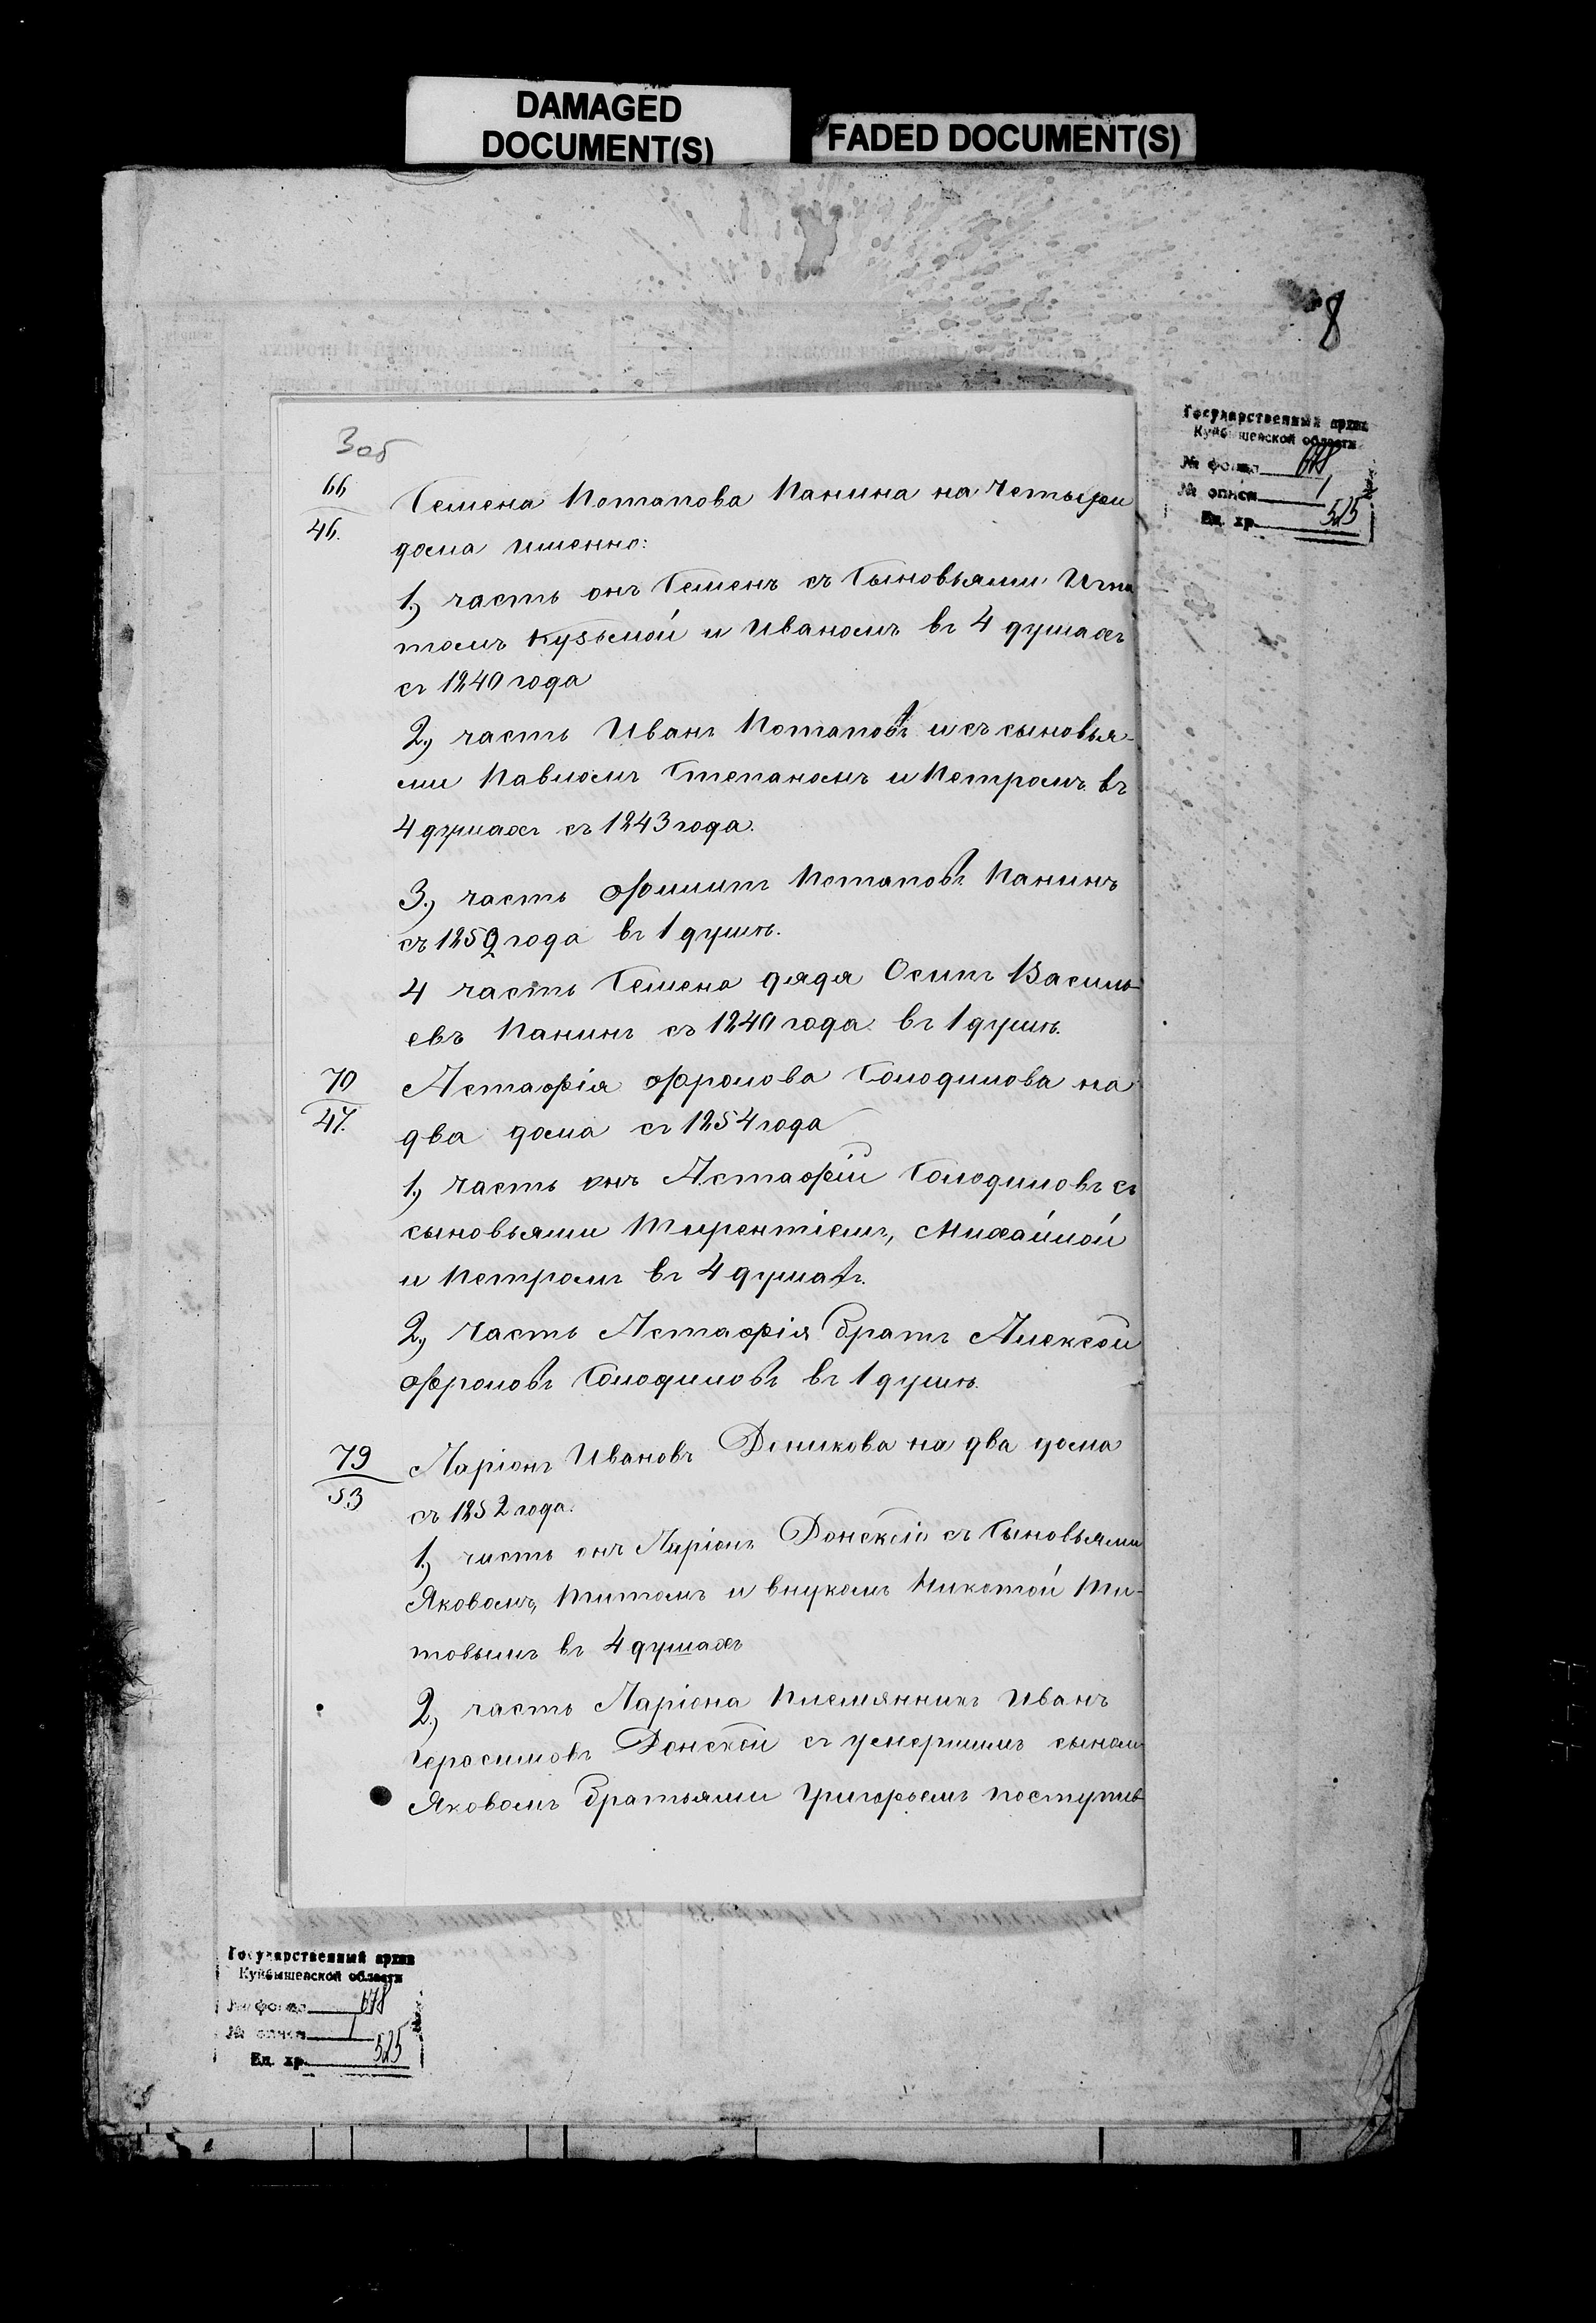 DAMAGED
DOCUMENT(S)
FADED DOCUMENT(S)
8
Государственный архив
Куйбышевской области
№ фонда 678
№ описи 1
Ед. хр. 525
3 об
66
46.
Семена Потапова Панина на четыри
дома именно:
1.) часть онъ Семенъ съ Сыновьями Игна
томъ Кузьмой и Иваномъ въ 4 душахъ
съ 1840 года
2.) часть Иванъ Потаповъ и съ сыновья-
ми Павломъ Степаномъ и Петромъ въ
4 душахъ съ 1843 года.
3.) часть Филипъ Потаповъ Панинъ
съ 1852 года въ 1 душѣ.
4 часть Семена дядя Осипъ Василь
евъ Панинъ съ 1840 года въ 1 душѣ.
70
47.
Астафія Фролова Солодилова на
два дома съ 1854 года
1.) часть онъ Астафій Солодиловъ съ
сыновьями Тирентіемъ, Михайлой
и Петромъ въ 4 душахъ.
2.) часть Астафія братъ Алексей
Фроловъ Солодиловъ въ 1 душѣ.
79
53
Ларіонъ Ивановъ Доникова на два дома
съ 1852 года.
1.) часть онъ Ларіонъ Донскій съ Сыновьями
Яковомъ, Титомъ и внукомъ Никитой Ти-
товымъ въ 4 душахъ
2.) часть Ларіона племянникъ Иванъ
Герасимовъ Донской съ умершимъ сыномъ
Яковомъ братьями Григорьемъ поступив
Государственный архив
Куйбышевской области
№ фонда 678
№ описи 1
Ед. хр. 525